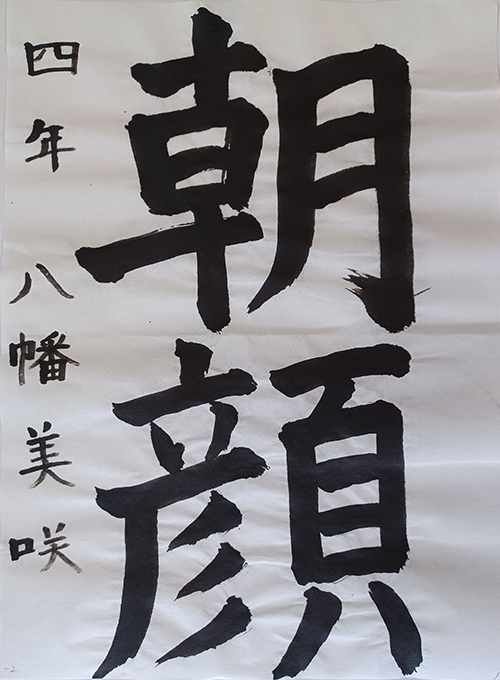 朝顔
四年 八幡美咲